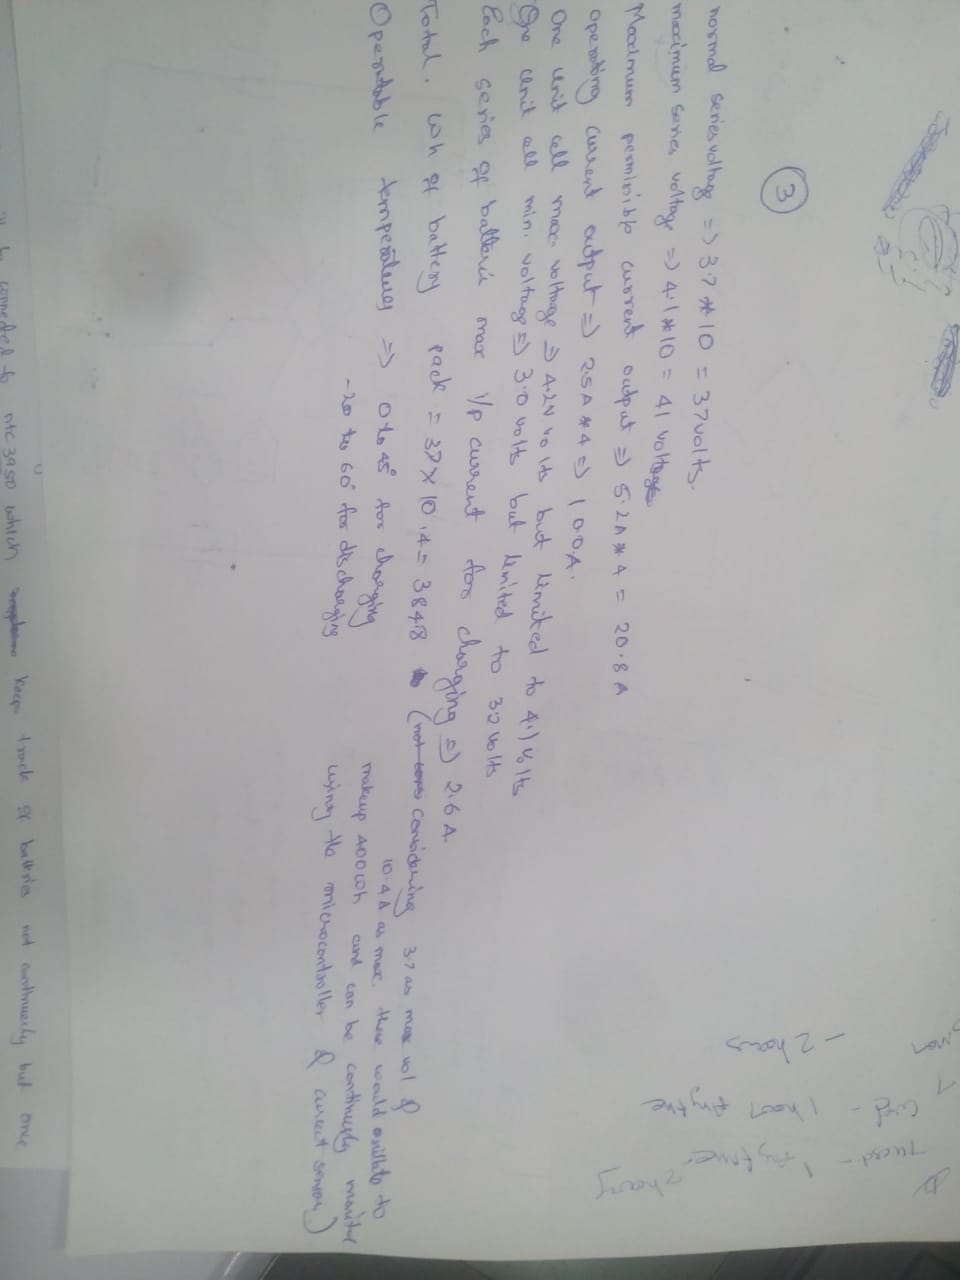 3
normal series voltage => 3.7 * 10 = 37 volts.
maximum series voltage => 4.1 * 10 = 41 volt
Maximum permisible current output => 5.2A * 4 = 20.8 A
operating current output => 2.5A * 4 => 10.0A.
One unit cell max. voltage => 4.2V volts but limited to 4.1 volts
One unit cell min. voltage => 3.0 volts but limited to 3.2 volts
Each series of batterie max i/p current for charging => 2.6 A.
Total. Wh of battery pack = 37 × 10.4 = 3848 (not considering 3.7 as max vol &
10.4 A as max these would to
makeup 400wh and can be continuesly
using the microcontroller & current sensor)
Operatable temperatures => 0 to 45° for charging
-20 to 60° for discharging
- 1 hour anytime
- 2 hours
connected to ntc 3950 which keeps track of battries not continuesly but once